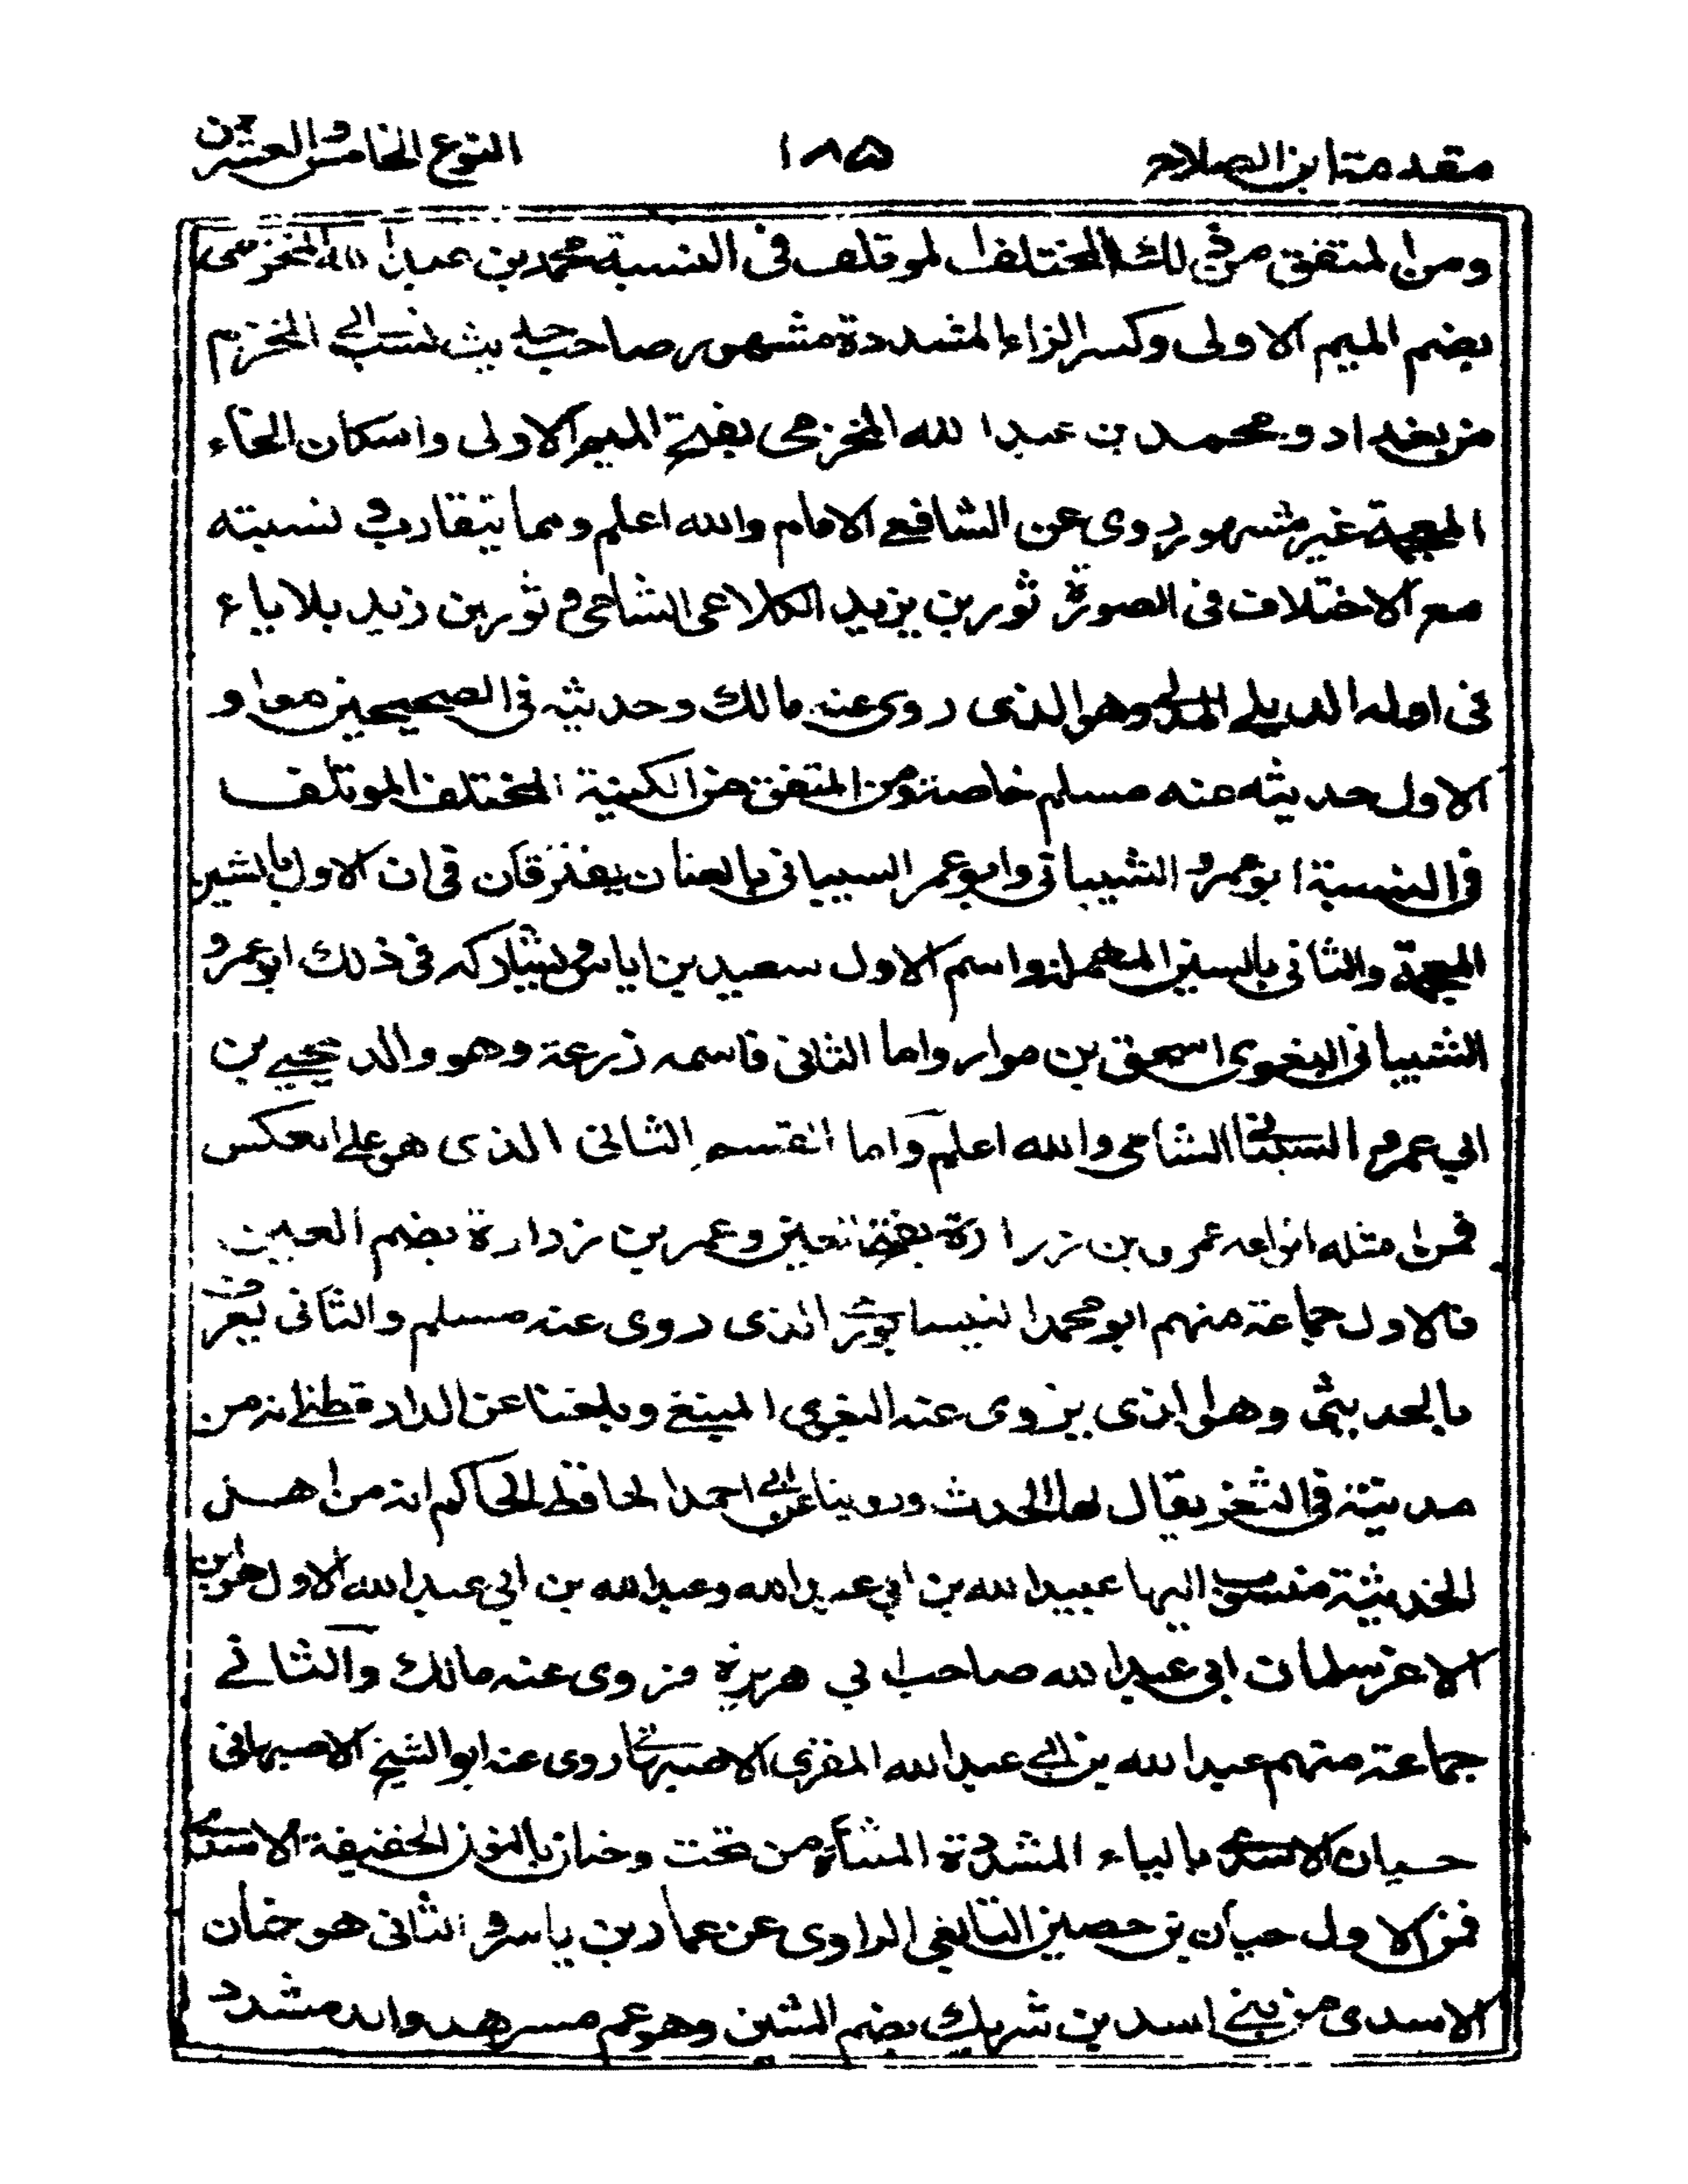 مقدمة ابن الصلاح ١٨٥ النوع الخامس والعشرون
ومن المتفق من ذلك المختلف الموتلف فى النسبة محمد بن عبد الله المخرمى
بضم الميم الاولى وكسر الراء المشددة مشهور صاحب حديث نسب الى المخرم
من بغداد ومحمد بن عبد الله المخرمى بفتح الميم الاولى واسكان الخاء
المعجمة غير مشهور روى عن الشافعى الامام والله اعلم ومما يتقارب نسبته
مع الاختلاف فى الصورة ثور بن يزيد الكلاعى الشامى وثور بن زيد بلا ياء
فى اوله الديلى المدنى وهو الذى روى عنه مالك وحديثه فى الصحيحين معا و
الاول حديثه عنه مسلم خاصة ومن المتفق من الكنية المختلف الموتلف
فى النسبة ابو عمرو الشيبانى وابو عمر السيبانى بالعنان يفترقان فى ان الاول بالشين
المعجمة والثانى بالسين المهملة واسم الاول سعيد بن اياس ويشاركه فى ذلك ابو عمرو
الشيبانى اللغوى اسحق بن موار واما الثانى فاسمه زرعة وهو والد يحيى بن
ابي عمرو السيبانى الشامى والله اعلم واما القسم الثانى الذى هو على العكس
فمن مثله انواعه عمرو بن زرارة بفتح العين وعمر بن زرارة بضم العين
فالاول جماعة منهم ابو محمد النيسابورى الذى روى عنه مسلم والثانى يعرف
بالحدثى وهو الذى يروى عنه البغوى المنيعى وبلغنا عن الدارقطنى انه من
مدينة فى الثغر يقال لها الحدث وروينا عن ابى احمد الحافظ الحاكم انه من اهل
الحديثة منسوب اليها عبيد الله بن ابي عبد الله وعبد الله بن ابي عبد الله الاول هو ابن
الاغر سلمان ابى عبد الله صاحب ابي هريرة فروى عنه مالك والثانى
جماعة منهم عبد الله بن ابى عبد الله المقرى الاصبهانى روى عنه ابو الشيخ الاصبهانى
حيان الاسدى بالياء المشددة المثناة من تحت وحنان بالنون الخفيفة الاسدى
فمن الاول حيان بن حصين التابعى الراوى عن عمار بن ياسر والثانى هو حنان
الاسدى من بنى اسد بن شريك بضم الشين وهو عم مسرهد والد مسدد